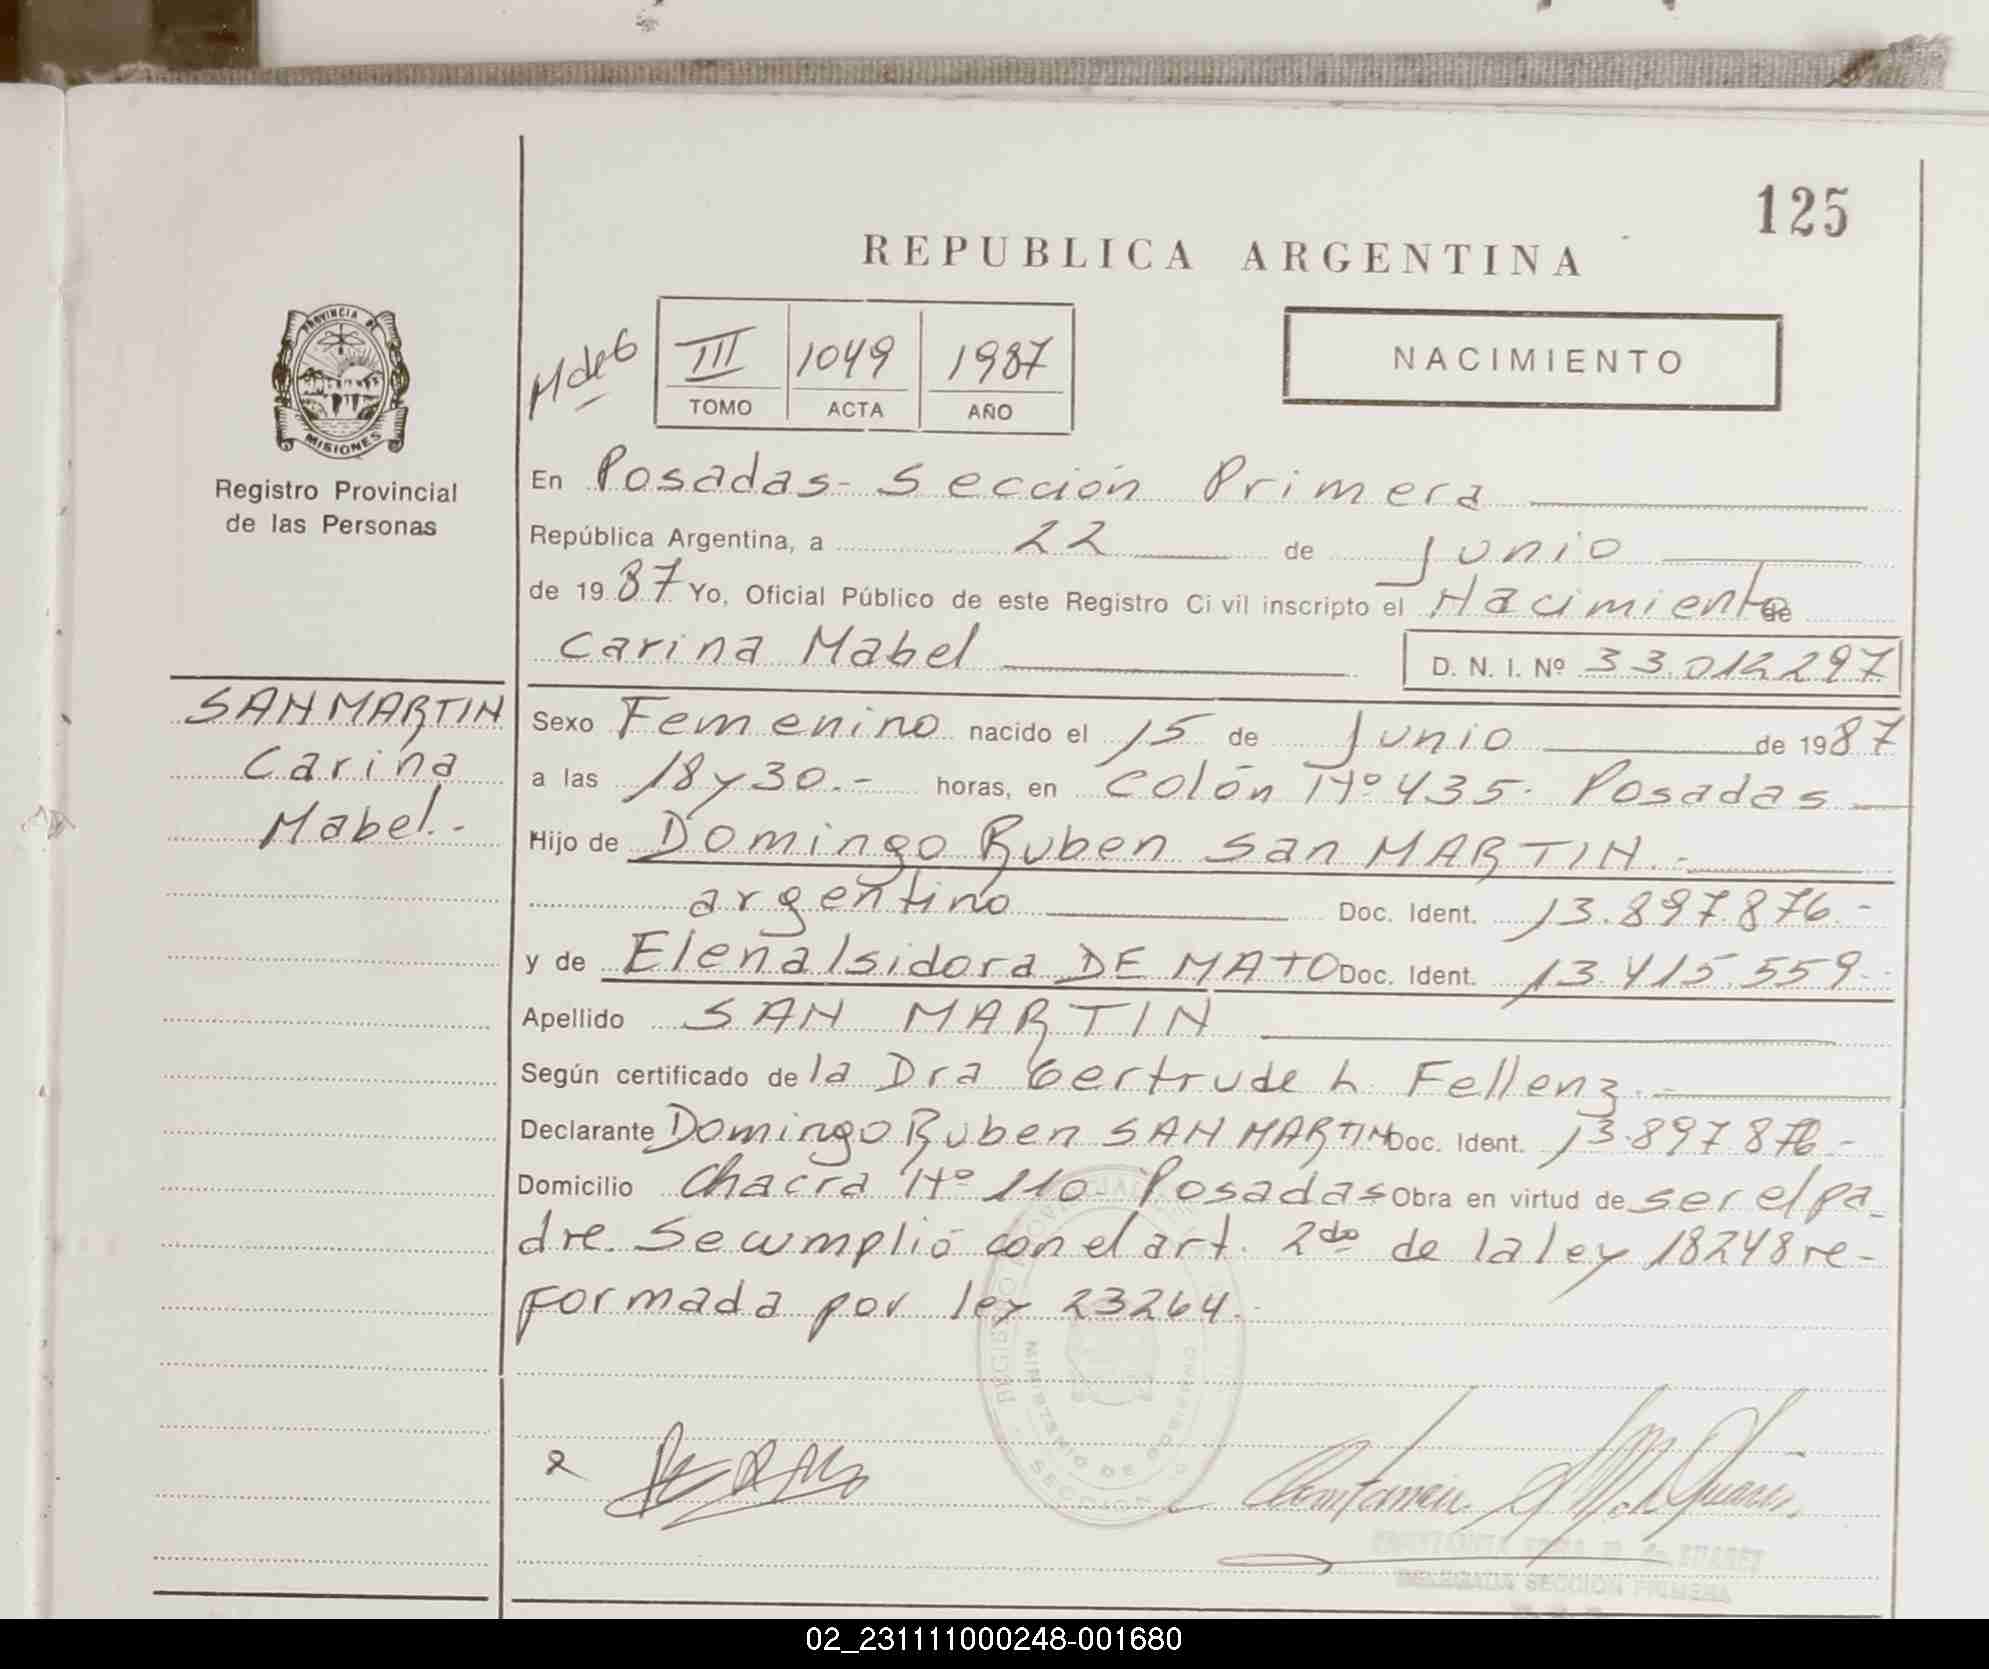 125
REPUBLICA ARGENTINA
PROVINCIA DE
MISIONES
Registro Provincial
de las Personas
M de G
III 1049 1987
TOMO ACTA AÑO
NACIMIENTO
En Posadas- Sección Primera
República Argentina, a 22 de Junio
de 1987 Yo, Oficial Público de este Registro Civil inscripto el Nacimiento de
Carina Mabel D. N. I. Nº 33.012.297
SAN MARTIN
Carina
Mabel.-
Sexo Femenino nacido el 15 de Junio de 1987
a las 18 y 30.- horas, en Colón Nº 435. Posadas
Hijo de Domingo Ruben San MARTIN.-
argentino Doc. Ident. 13.897.876.-
y de Elena Isidora DE MATO Doc. Ident. 13.415.559.-
Apellido SAN MARTIN
Según certificado de la Dra Gertrude h. Fellenz.-
Declarante Domingo Ruben SAN MARTIN Doc. Ident. 13.897.876.-
Domicilio Chacra Nº 110 Posadas Obra en virtud de ser el pa-
dre. Se cumplió con el art. 2do de la ley 18248 re-
formada por ley 23264.-
DELEGADA SECCION PRIMERA
02_231111000248-001680